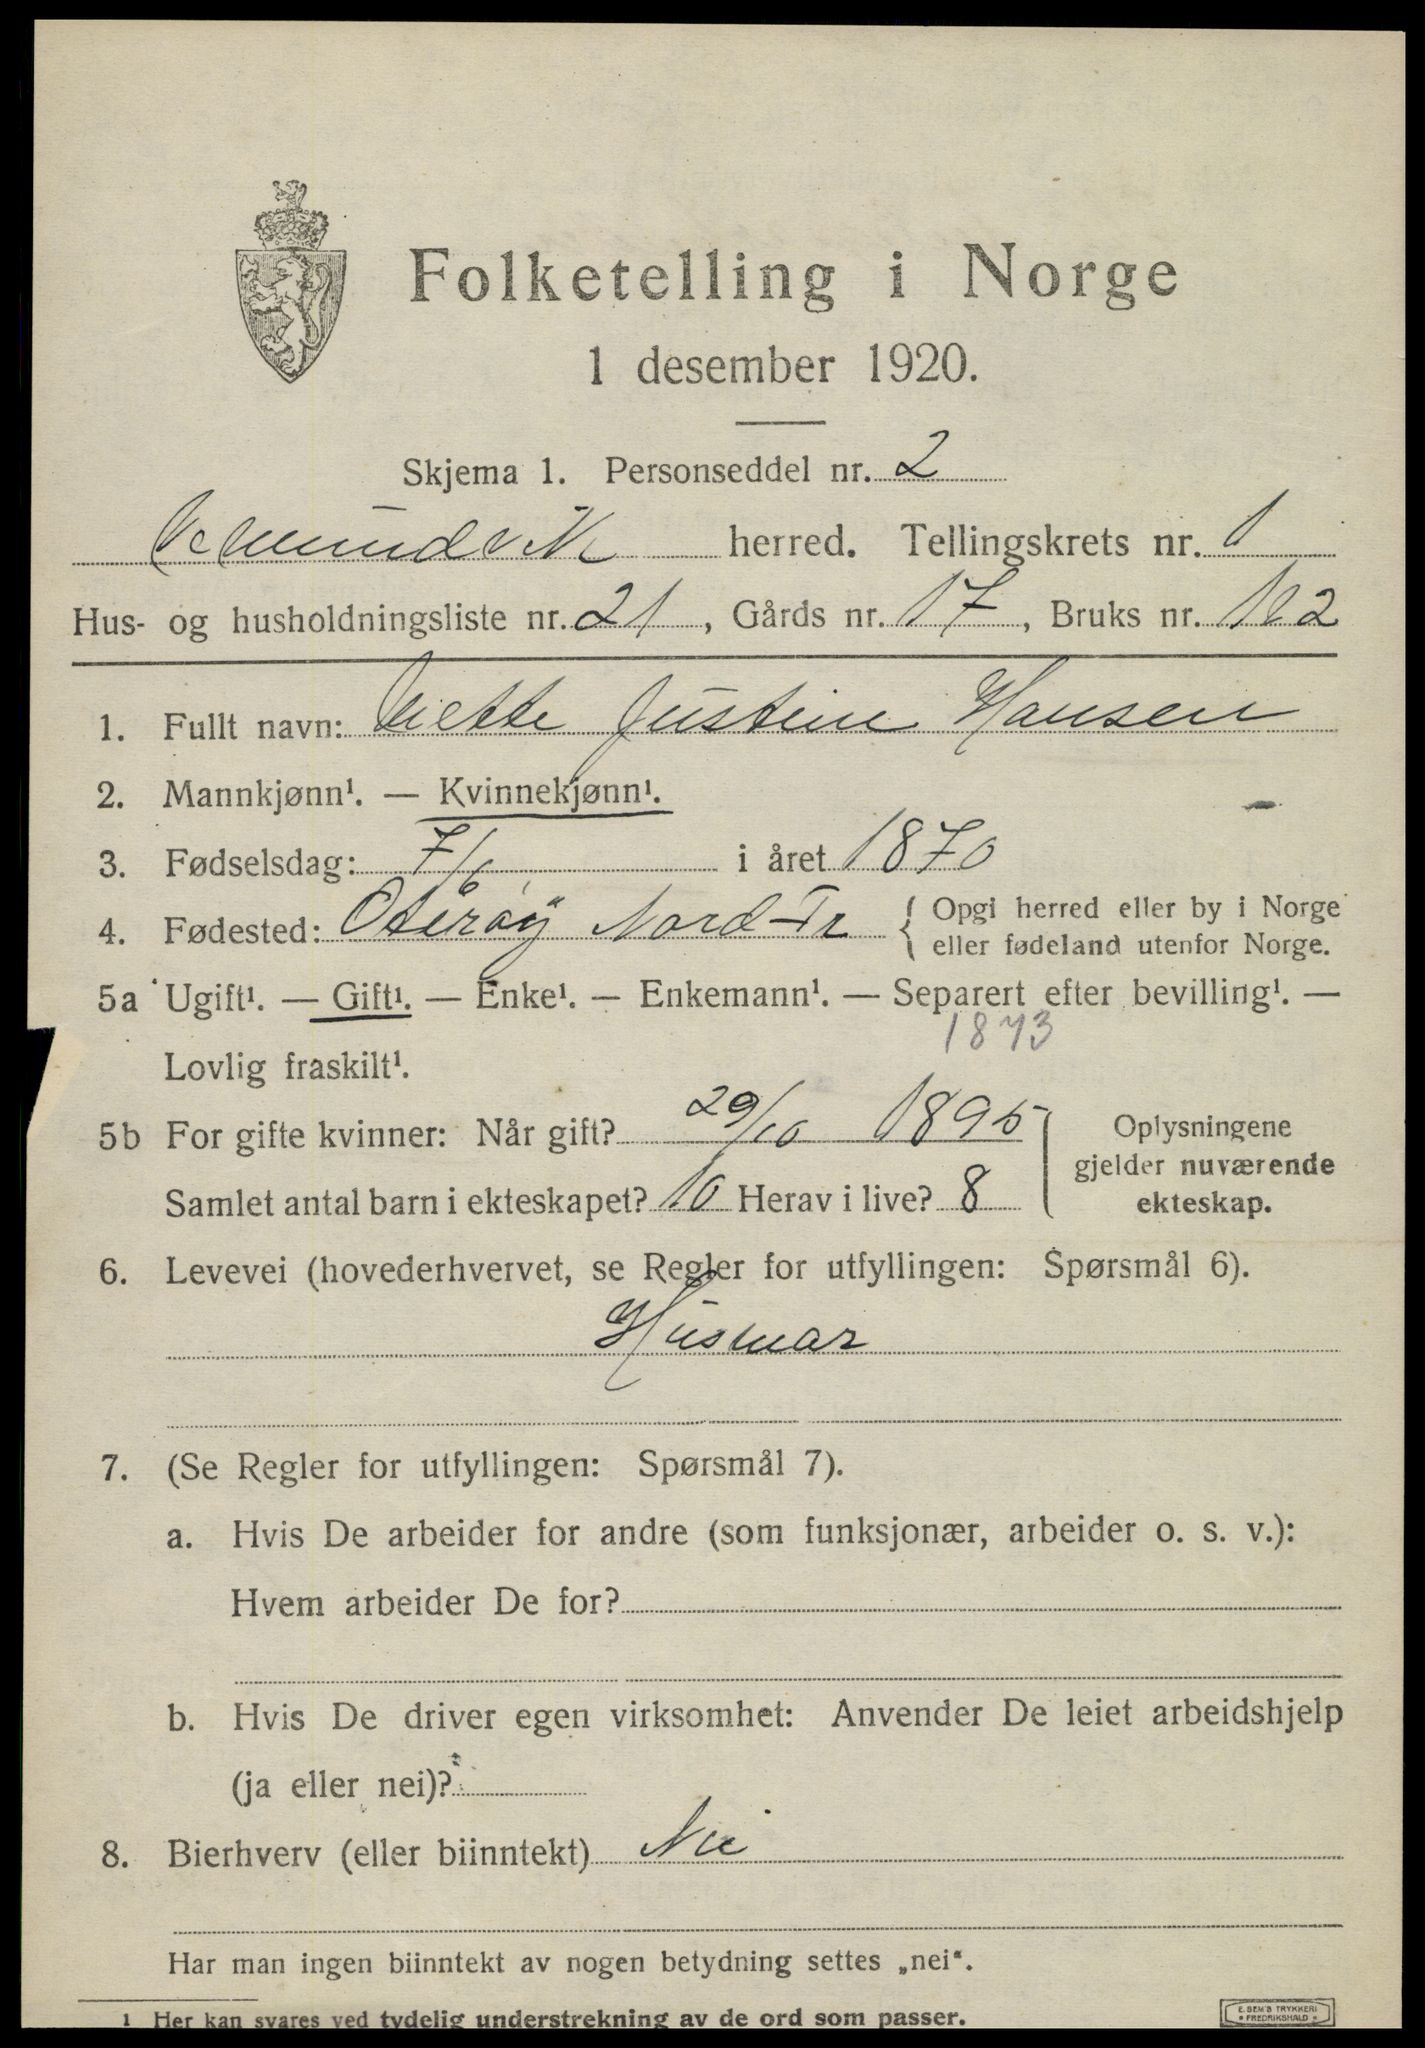 Folketelling i Norge
1 desember 1920.
Skjema 1. Personseddel nr. 2
Vemundvik herred. Tellingskrets nr. 1
Hus- og husholdningsliste nr. 21, Gårds nr. 17, Bruks nr. 1 2
1. Fullt navn: Mette Justine Hansen
2. Mannkjønn¹. — Kvinnekjønn¹.
3. Fødselsdag: 7/6 i året 1870
4. Fødested: Oterøy Nord-Tr { Opgi herred eller by i Norge
eller fødeland utenfor Norge.
5a Ugift¹. — Gift¹. — Enke¹. — Enkemann¹. — Separert efter bevilling¹. —
1873
Lovlig fraskilt¹.
5b For gifte kvinner: Når gift? 29/10 1895
Samlet antal barn i ekteskapet? 10 Herav i live? 8
Oplysningene
gjelder nuværende
ekteskap.
6. Levevei (hovederhvervet, se Regler for utfyllingen: Spørsmål 6).
Husmor
7. (Se Regler for utfyllingen: Spørsmål 7).
a. Hvis De arbeider for andre (som funksjonær, arbeider o. s. v.):
Hvem arbeider De for?
b. Hvis De driver egen virksomhet: Anvender De leiet arbeidshjelp
(ja eller nei)?
8. Bierhverv (eller biinntekt) Nei
Har man ingen biinntekt av nogen betydning settes „nei“.
1 Her kan svares ved tydelig understrekning av de ord som passer.
E. SEM'S TRYKKERI
* FREDRIKSHALD *